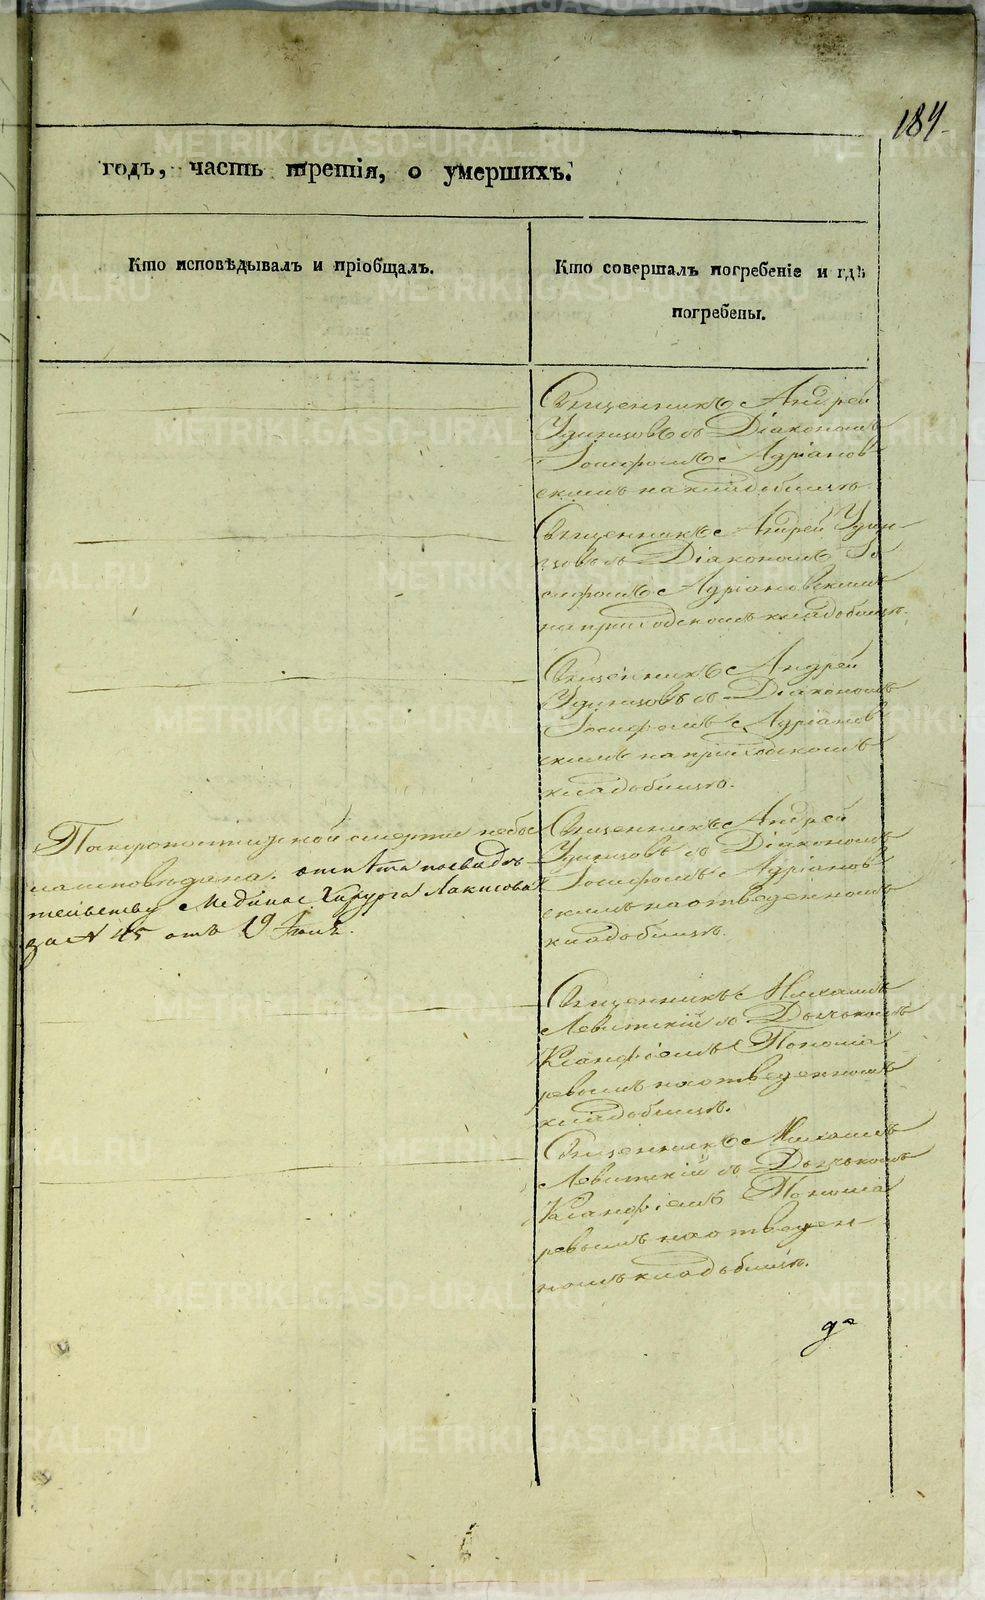 184.
годъ, часть третія, о умершихъ.
Кто исповѣдывалъ и пріобщалъ.
Кто совершалъ погребеніе и гдѣ
погребены.
Священникъ Андрей
Удинцовъ съ Діакономъ
Іосифомъ Адріанов
скимъ на кладбищѣ
Священникъ Андрей Удин-
цовъ съ Діакономъ Іо
сифомъ Адріановскимъ
на приходскомъ кладбищѣ.
Священникъ Андрей
Удинцовъ съ Діакономъ
Іосифомъ Адріанов
скимъ на приходскомъ
кладбищѣ.
По скоропостижной смерти небы
ла исповѣдана. отпѣта по свидѣ
тельству Медика Хирурга
за № 45 отъ 19 Іюля.
Священникъ Андрей
Удинцовъ съ Діакономъ
Іосифомъ Адріанов
скимъ на отведенномъ
кладбищѣ.
Священникъ Михаилъ
Левитскій съ Дьячкомъ
Ксанфіемъ Понома
ревымъ на отведенномъ
кладбищѣ.
Священникъ Михаилъ
Левитскій съ Дьячкомъ
Ксанфіемъ Понома
ревымъ на отведен-
номъ кладбищѣ.
METRIKI.GASO-URAL.RU